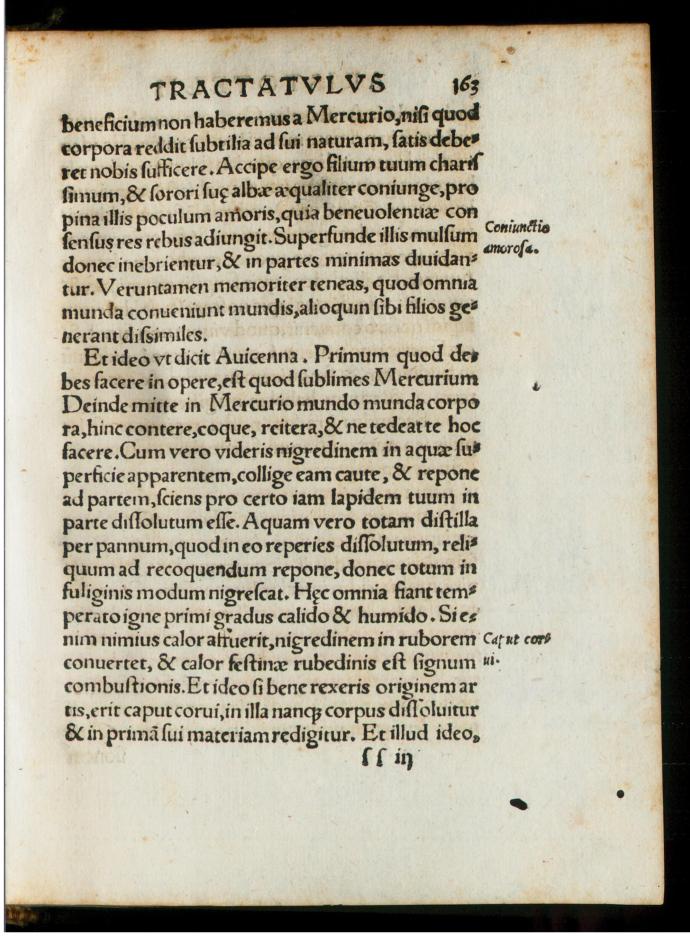 TRACTATVLVS 163
beneficium non haberemus a Mercurio, nisi quod
corpora reddit subtilia ad sui naturam, satis debe⸗
ret nobis sufficere. Accipe ergo filium tuum charis
simum, & sorori suę albæ æqualiter coniunge, pro
pina illis poculum amoris, quia beneuolentiæ con
sensus res rebus adiungit. Superfunde illis mulsum
Coniunctio
amorosa.
donec inebrientur, & in partes minimas diuidan⸗
tur. Veruntamen memoriter teneas, quod omnia
munda conueniunt mundis, alioquin sibi filios ge⸗
nerant dissimiles.
Et ideo vt dicit Auicenna. Primum quod de⸗
bes facere in opere, est quod sublimes Mercurium
Deinde mitte in Mercurio mundo munda corpo
ra, hinc contere, coque, reitera, & ne tedeat te hoc
facere. Cum vero videris nigredinem in aquæ su⸗
perficie apparentem, collige eam caute, & repone
ad partem, sciens pro certo iam lapidem tuum in
parte dissolutum esse. Aquam vero totam distilla
per pannum, quod in eo reperies dissolutum, reli⸗
quum ad recoquendum repone, donec totum in
fuliginis modum nigrescat. Hęc omnia fiant tem⸗
perato igne primi gradus calido & humido. Si e⸗
nim nimius calor affuerit, nigredinem in ruborem
Caput cor⸗
ui.
conuertet, & calor festinæ rubedinis est signum
combustionis. Et ideo si bene rexeris originem ar
tis, erit caput corui, in illa nanqꝫ corpus dissoluitur
& in primā sui materiam redigitur. Et illud ideo,
ss iij